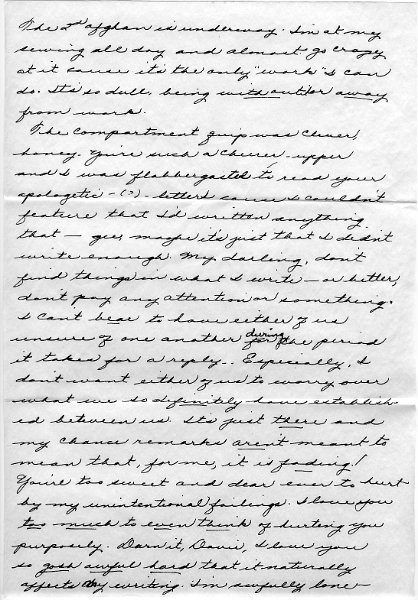 The 2nd afghan is underway. I'm at my
sewing all day and almost go crazy
at it cause it's the only "work" I can
do. It's so dull, being without or away
from work.
The compartment quip was clever,
honey. You're such a cheerer-upper
and I was flabbergasted to read your
apologetic - (?) - letter cause I couldn't
feature that I'd written anything
that — gee, maybe it's just that I didn't
write enough. My darling, don't
find things in what I write — or better,
don't pay any attention or something.
I can't bear to have either of us
unsure of one another during the period
it takes for a reply. Especially, I
don't want either of us to worry over
what we so definitely have establish-
ed between us. It's just there and
my chance remarks aren't meant to
mean that, for me, it is fading!
You're too sweet and dear ever to hurt
by my unintentional failings. I love you
too much to even think of hurting you
purposely. Darn it, I love you
so gosh awful hard that it naturally
affects my writing. I'm awfully lone-